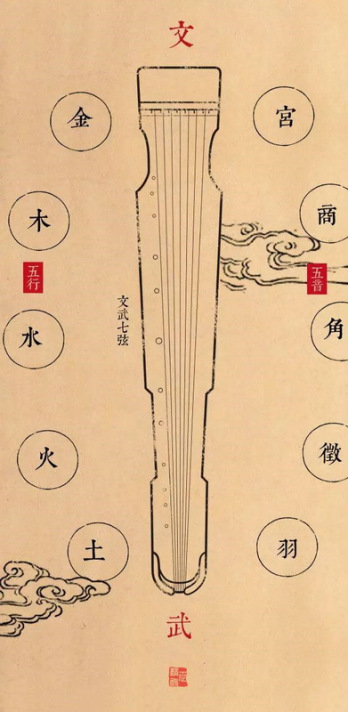 文
金
木
五行
水
火
土
文武七弦
宮
商
五音
角
徵
羽
武